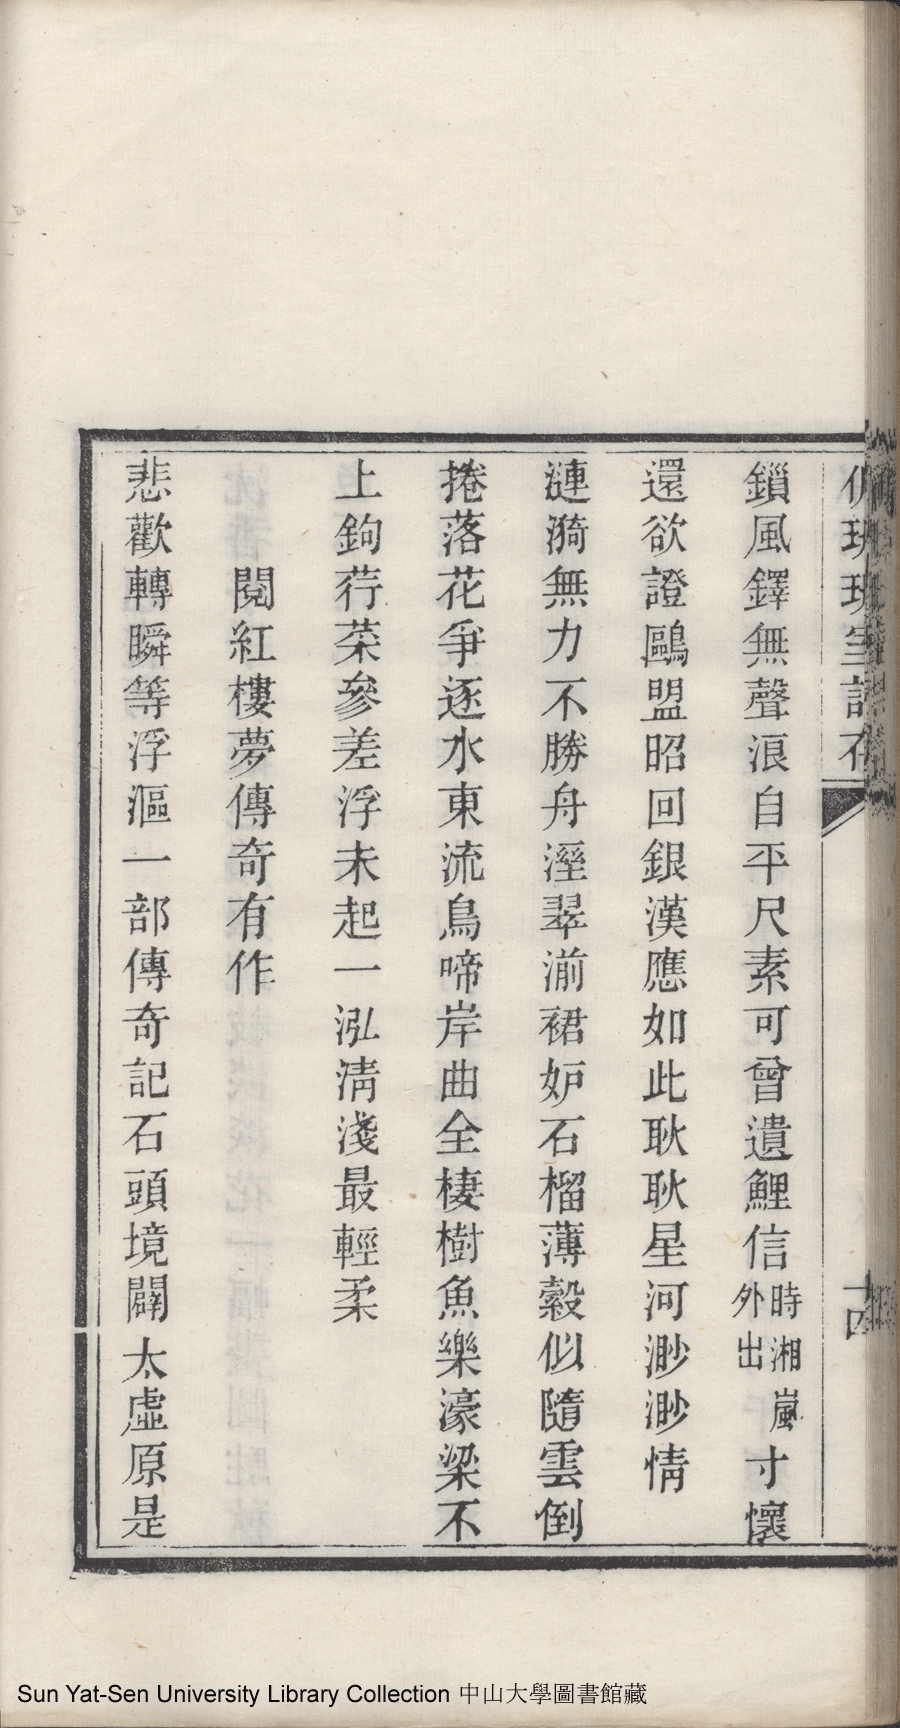 鎖風鐸無聲浪自平尺素可曾遺鯉信時湘嵐外出寸懷
還欲證鷗盟昭回銀漢應如此耿耿星河渺渺情
漣漪無力不勝舟溼翠湔裙妒石榴薄縠似隨雲倒
捲落花爭逐水東流鳥啼岸曲全棲樹魚樂濠梁不
上鉤荇菜參差浮未起一泓淸淺最輕柔
閱紅樓夢傳奇有作
悲歡轉瞬等浮漚一部傳奇記石頭境闢太虛原是
十四
Sun Yat-Sen University Library Collection 中山大學圖書館藏